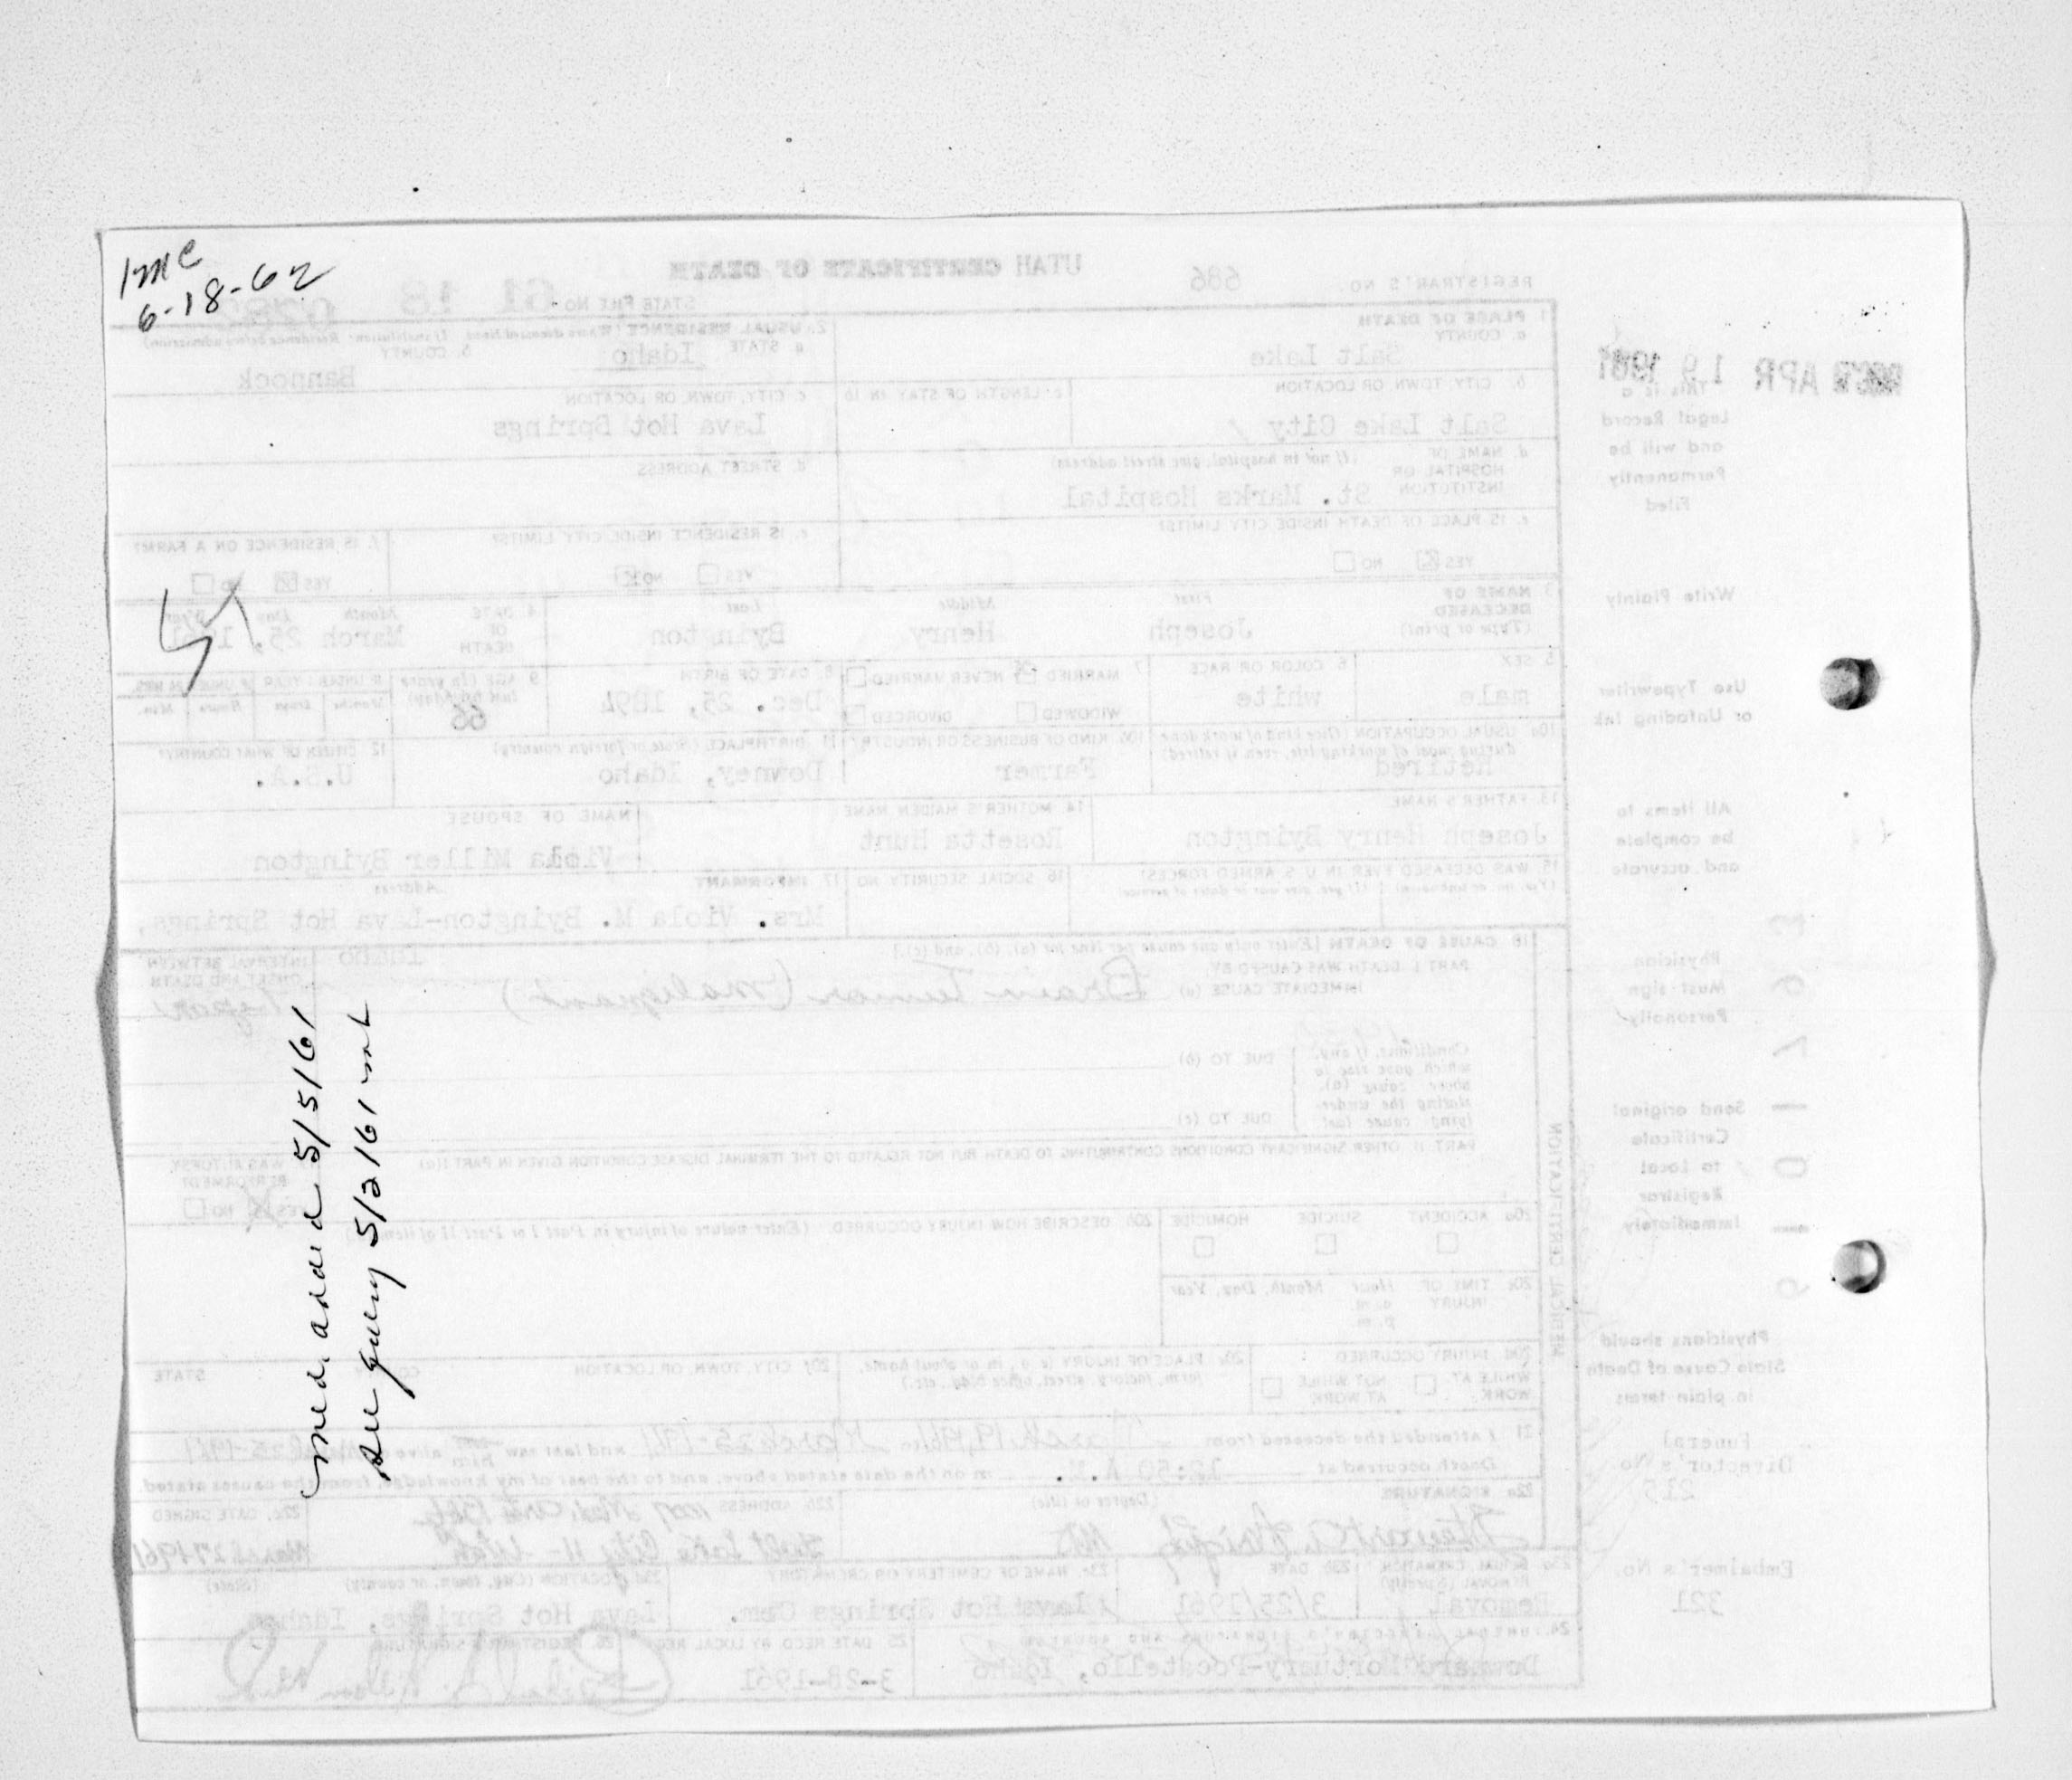 1mc
6-18-62
med. added 5/5/61
see query 5/2/61 mk
UTAH CERTIFICATE OF DEATH
REGISTRAR'S NO. 686
STATE FILE NO. 61 18
REC'D APR 19 1961
This is a
Legal Record
and will be
Permanently
Filed
Write Plainly
Use Typewriter
or Unfading Ink
All items to
be complete
and accurate
Physician
Must sign
Personally
Send original
Certificate
to Local
Registrar
Immediately
Physicians should
State Cause of Death
in plain terms
Funeral
Director's No.
215
Embalmer's No.
321
1. PLACE OF DEATH
a. COUNTY
Salt Lake
b. CITY, TOWN, OR LOCATION
Salt Lake City
c. LENGTH OF STAY IN 1b
d. NAME OF HOSPITAL OR INSTITUTION (If not in hospital, give street address)
St. Marks Hospital
e. IS PLACE OF DEATH INSIDE CITY LIMITS?
YES NO
2. USUAL RESIDENCE (Where deceased lived. If institution: Residence before admission)
a. STATE Idaho
b. COUNTY Bannock
c. CITY, TOWN, OR LOCATION
Lava Hot Springs
d. STREET ADDRESS
e. IS RESIDENCE INSIDE CITY LIMITS?
YES NO
f. IS RESIDENCE ON A FARM?
YES NO
3. NAME OF DECEASED (Type or print)
First Middle Last
Joseph Henry Byington
4. DATE OF DEATH Month Day Year
March 25, 1961
5. SEX
male
6. COLOR OR RACE
white
7. MARRIED NEVER MARRIED
WIDOWED DIVORCED
8. DATE OF BIRTH
Dec. 25, 1894
9. AGE (In years last birthday)
66
IF UNDER 1 YEAR IF UNDER 24 HRS.
Months Days Hours Min.
10a. USUAL OCCUPATION (Give kind of work done during most of working life, even if retired)
Retired
10b. KIND OF BUSINESS OR INDUSTRY
Farmer
11. BIRTHPLACE (State or foreign country)
Downey, Idaho
12. CITIZEN OF WHAT COUNTRY?
U.S.A.
13. FATHER'S NAME
Joseph Henry Byington
14. MOTHER'S MAIDEN NAME
Rosetta Hunt
NAME OF SPOUSE
Viola Miller Byington
15. WAS DECEASED EVER IN U. S. ARMED FORCES?
(Yes, no, or unknown) (If yes, give war or dates of service)
16. SOCIAL SECURITY NO.
17. INFORMANT Address
Mrs. Viola M. Byington-Lava Hot Springs,
Idaho
18. CAUSE OF DEATH [Enter only one cause per line for (a), (b), and (c).]
PART I. DEATH WAS CAUSED BY:
IMMEDIATE CAUSE (a) Brain Tumor (malignant)
INTERVAL BETWEEN ONSET AND DEATH
Conditions, if any, which gave rise to above cause (a), stating the underlying cause last
DUE TO (b)
DUE TO (c)
PART II. OTHER SIGNIFICANT CONDITIONS CONTRIBUTING TO DEATH BUT NOT RELATED TO THE TERMINAL DISEASE CONDITION GIVEN IN PART I(a)
19. WAS AUTOPSY PERFORMED?
YES NO
MEDICAL CERTIFICATION
20a. ACCIDENT SUICIDE HOMICIDE
20b. DESCRIBE HOW INJURY OCCURRED. (Enter nature of injury in Part I or Part II of item 18.)
20c. TIME OF INJURY Hour Month, Day, Year
a.m.
p.m.
20d. INJURY OCCURRED
WHILE AT WORK NOT WHILE AT WORK
20e. PLACE OF INJURY (e.g., in or about home, farm, factory, street, office bldg., etc.)
20f. CITY, TOWN, OR LOCATION COUNTY STATE
21. I attended the deceased from March 19, 1961 to March 25-1961 and last saw him alive on March 25-1961
Death occurred at 12:50 A.M. m on the date stated above, and to the best of my knowledge, from the causes stated.
22a. SIGNATURE (Degree or title)
MD
22b. ADDRESS
Salt Lake City 11 - Utah
22c. DATE SIGNED
March 27 1961
23a. BURIAL, CREMATION, REMOVAL (Specify)
Removal
23b. DATE
3/25/1961
23c. NAME OF CEMETERY OR CREMATORY
Lava Hot Springs Cem.
23d. LOCATION (City, town, or county) (State)
Lava Hot Springs, Idaho
24. FUNERAL DIRECTOR'S SIGNATURE AND ADDRESS
Downard Mortuary-Pocatello, Idaho
25. DATE REC'D BY LOCAL REG.
3-28-1961
26. REGISTRAR'S SIGNATURE